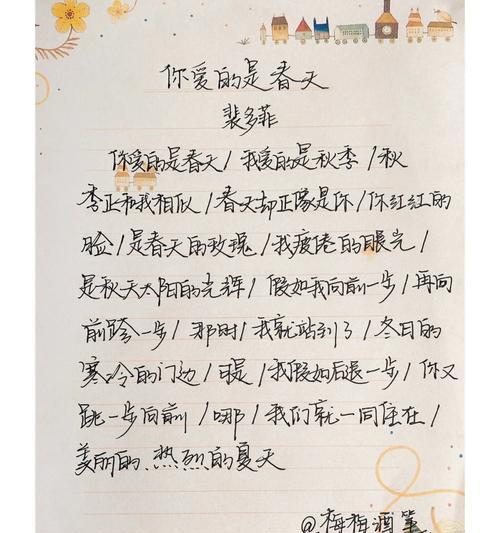 你爱的是春天
裴多菲
你爱的是春天/我爱的是秋季/秋
季正和我相似/春天却正像是你/你红红的
脸/是春天的玫瑰/我疲倦的眼光/
是秋天太阳的光辉/假如我向前一步/再向
前跨一步/那时/我就站到了/冬日的
寒冷的门边/可是/我假如后退一步/你又
跳一步向前/哪/我们就一同住在/
美丽的、热烈的夏天
@梅梅酒笔